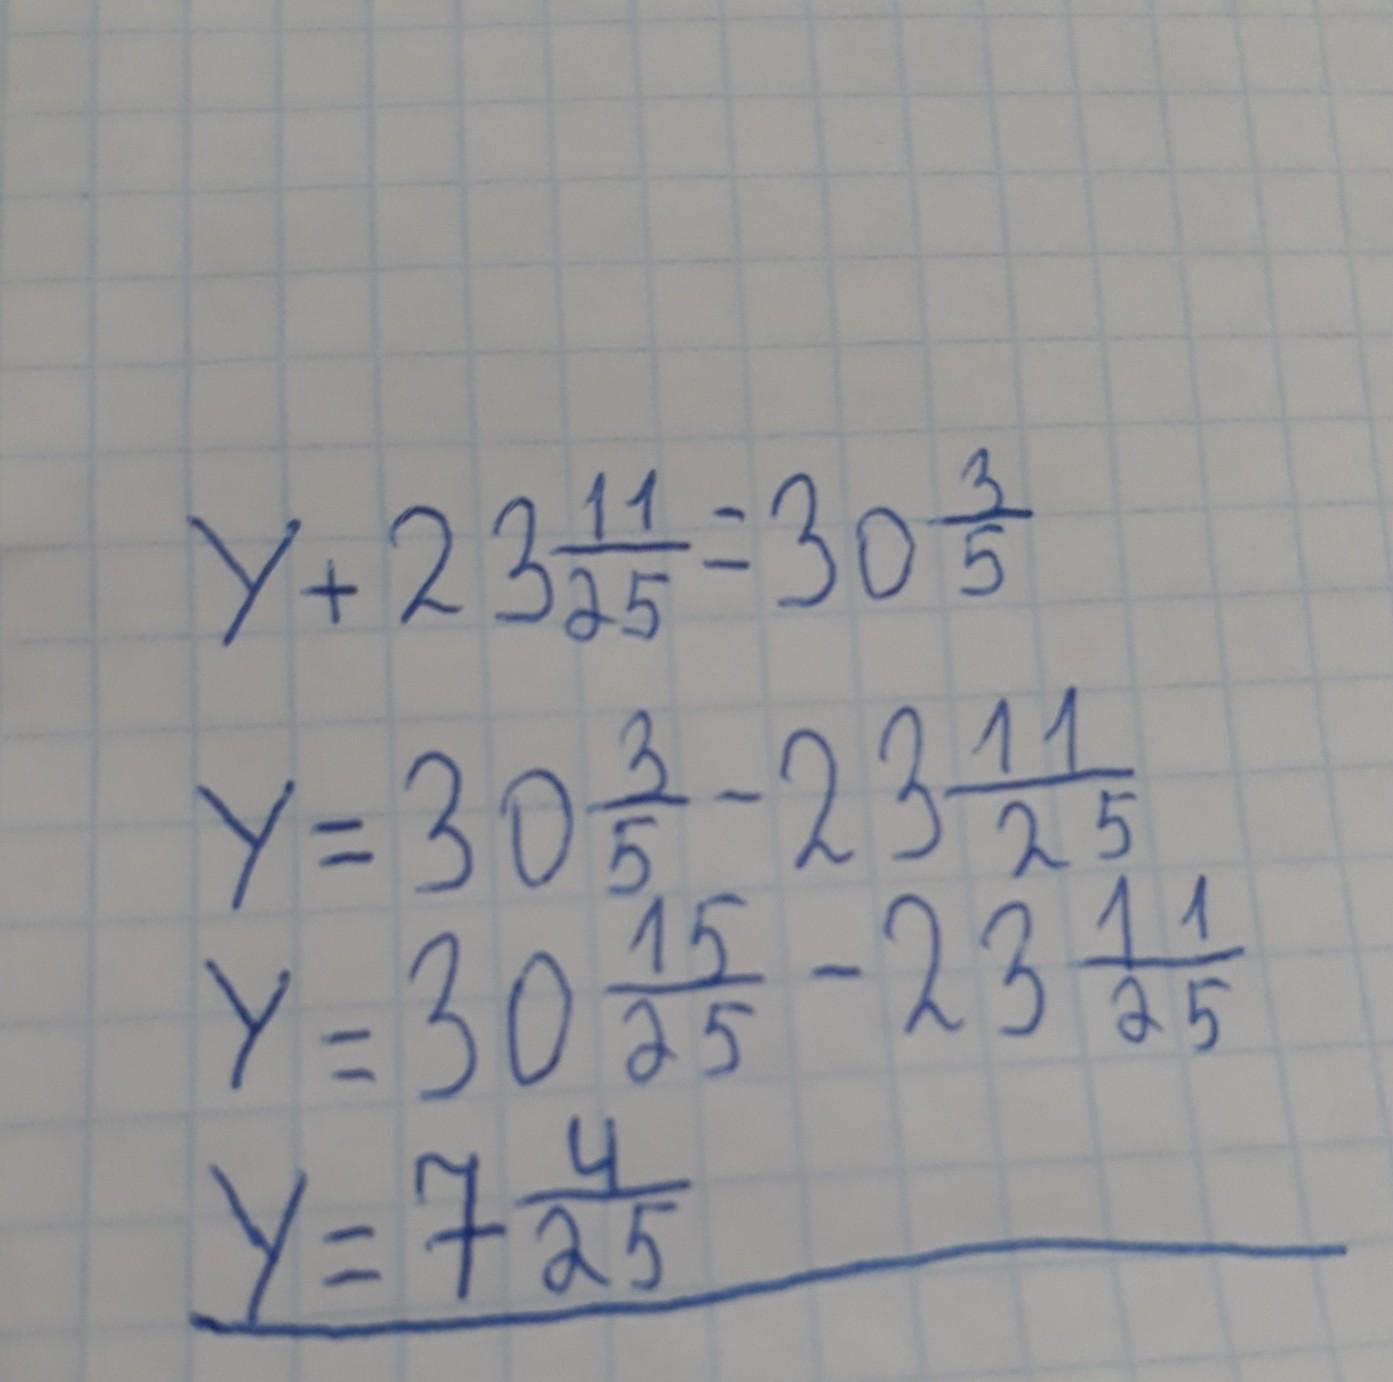 y + 23 11/25 = 30 3/5
y = 30 3/5 - 23 11/25
y = 30 15/25 - 23 11/25
y = 7 4/25